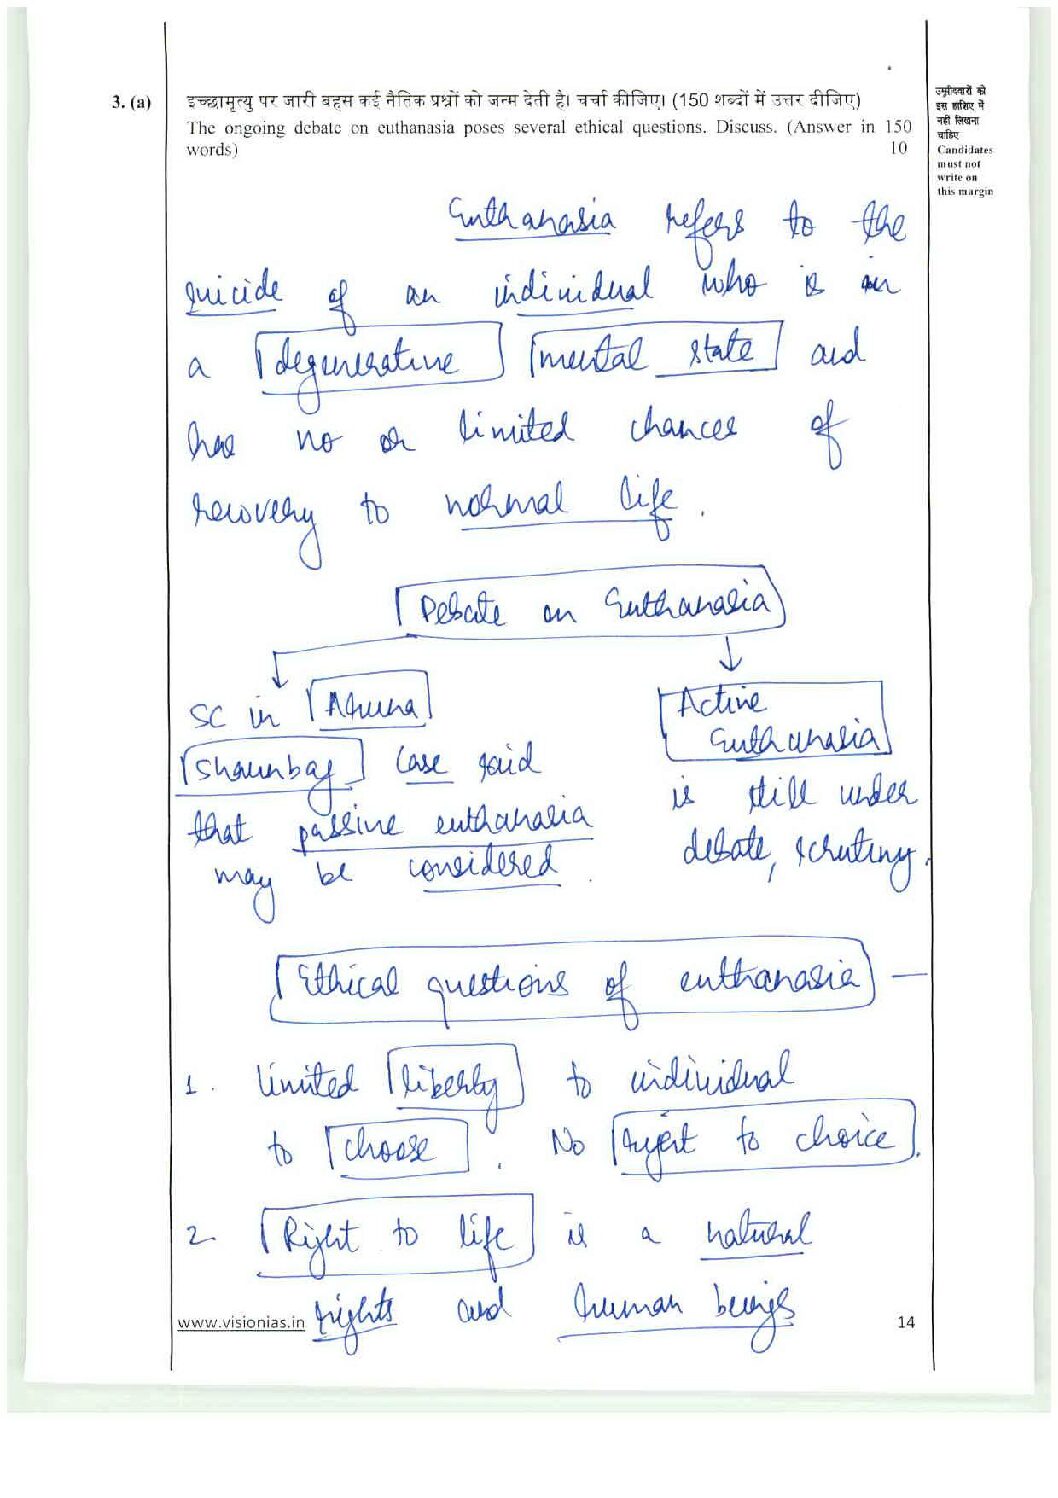 3. (a) इच्छामृत्यु पर जारी बहस कई नैतिक प्रश्नों को जन्म देती है। चर्चा कीजिए। (150 शब्दों में उत्तर दीजिए)
The ongoing debate on euthanasia poses several ethical questions. Discuss. (Answer in 150
words) 10
उम्मीदवारों को
इस हाशिए में
नहीं लिखना
चाहिए
Candidates
must not
write on
this margin
Euthanasia refers to the
suicide of an individual who is in
a degenerative mental state and
has no or limited chances of
recovery to normal life.
Debate on Euthanasia
SC in Aruna
Shaunbag case said
that passive euthanasia
may be considered.
Active
Euthanasia
is still under
debate, scrutiny.
Ethical questions of euthanasia —
1. Limited liberty to individual
to choose. No right to choice.
2. Right to life is a natural
rights and human beings
www.visionias.in
14